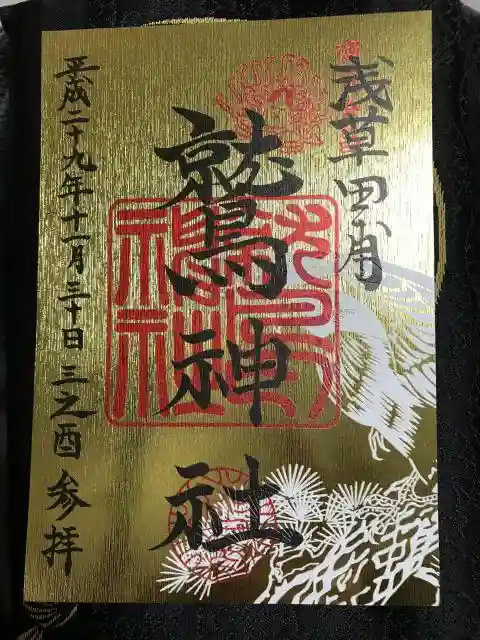 浅草田甫
鷲神社
平成二十九年十一月三十日 三之酉 参拝